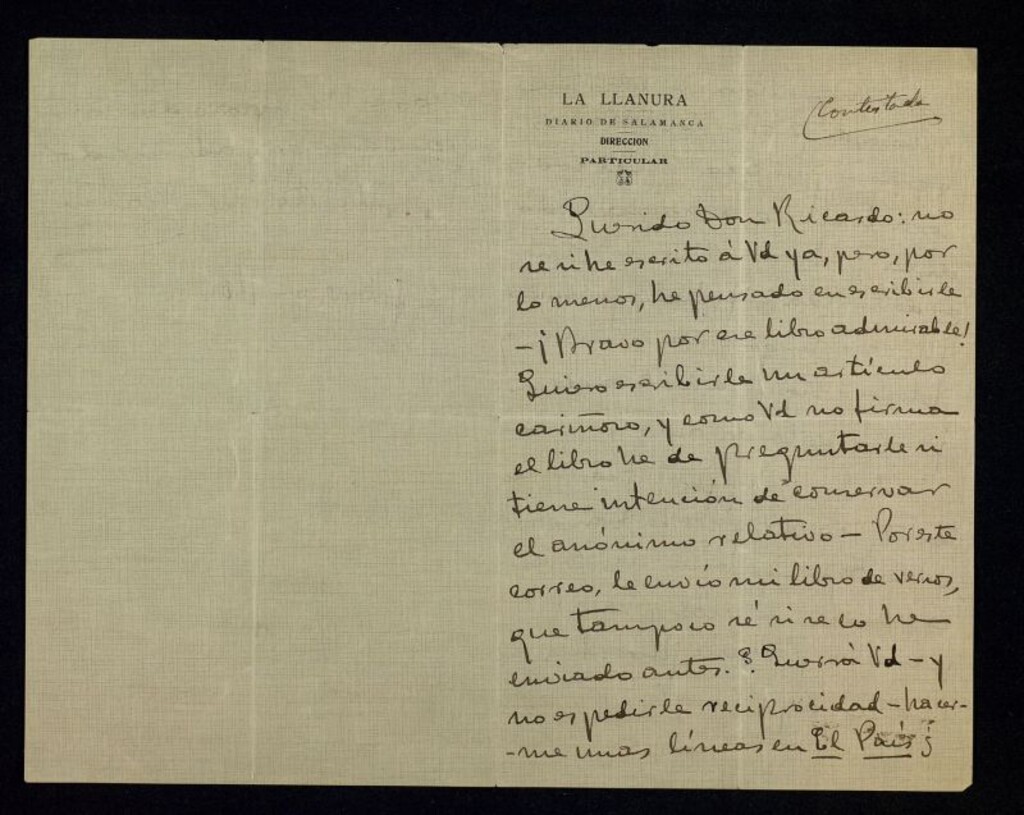 LA LLANURA
DIARIO DE SALAMANCA
DIRECCION
PARTICULAR
Contestada
Querido Don Ricardo: no
se si he escrito á Vd ya, pero, por
lo menos, he pensado en escribirle
– ¡Bravo por ese libro admirable!
Quiero escribirle un artículo
cariñoso, y como Vd no firma
el libro he de preguntarle si
tiene intención de conservar
el anónimo relativo – Por este
correo, le envío mi libro de versos,
que tampoco sé si se lo he
enviado antes. ? Querrá Vd – y
no es pedirle reciprocidad – hacer-
-me unas líneas en El País ¿